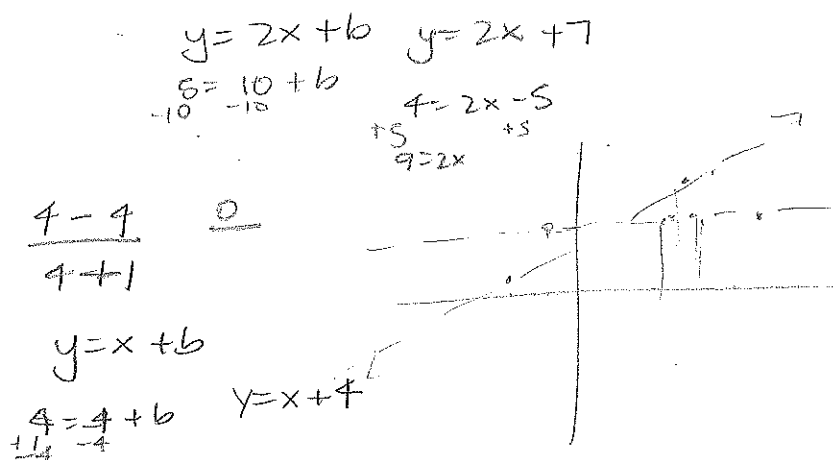 y = 2x + b
y = 2x + 7
5 = 10 + b
-10 -10
4 = 2x - 5
+5 +5
9 = 2x
4 - 4
4 + 1
0
y = x + b
4 = 4 + b
-4
y = x + 4